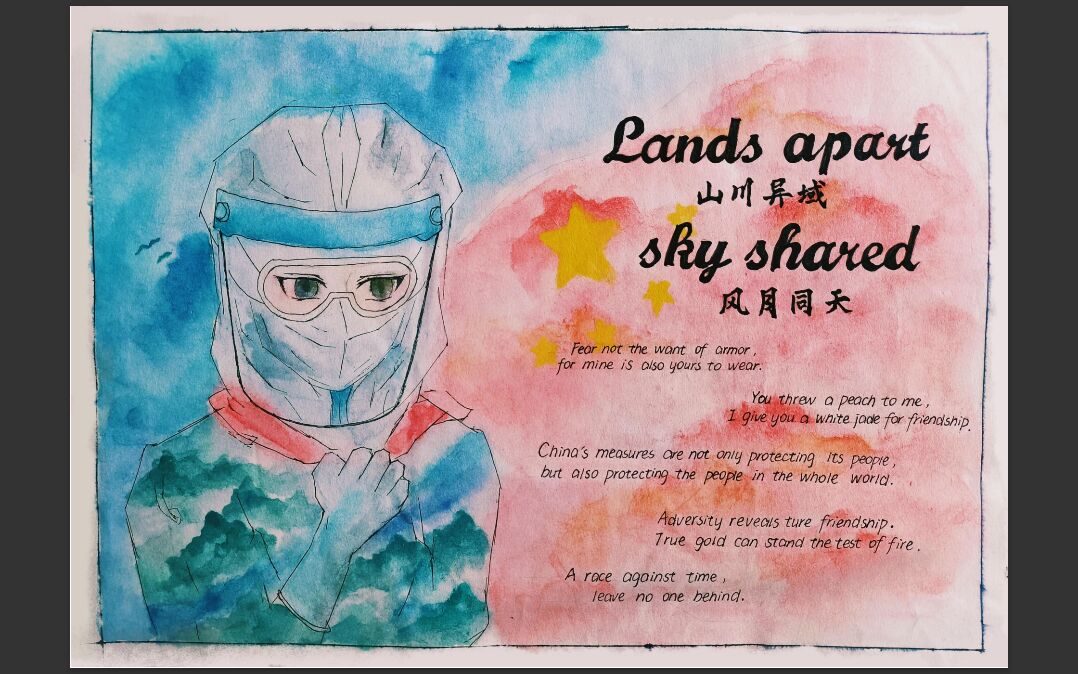 Lands apart
山川异域
sky shared
风月同天
Fear not the want of armor,
for mine is also yours to wear.
You threw a peach to me,
I give you a white jade for friendship.
China's measures are not only protecting its people,
but also protecting the people in the whole world.
Adversity reveals ture friendship.
True gold can stand the test of fire.
A race against time,
leave no one behind.